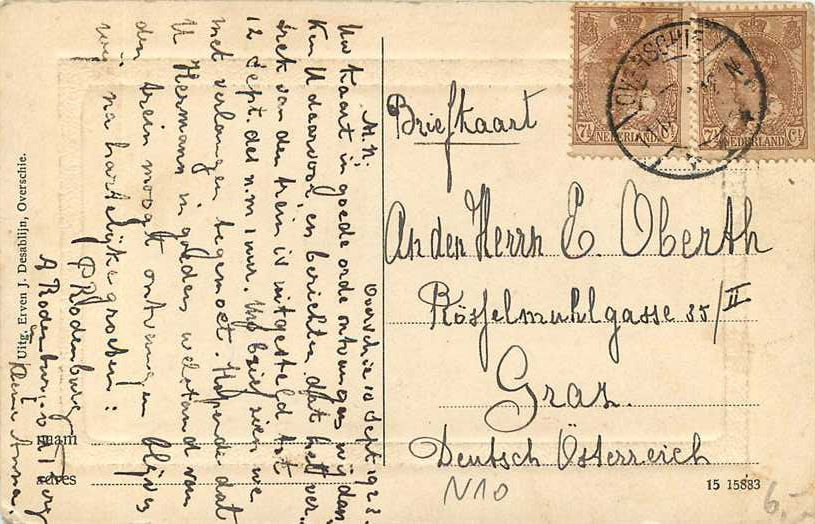 Overschie 10 Sept. 1923.
M. H.
Uw kaart in goede orde ontvangen wij dan
ken U daarvoor, en berichten dat het ver
trek van den trein is uitgesteld tot
12 Sept. des n.m. 1 uur. Uw brief zien we
met verlangen tegemoet. Hopende dat
U Hermann in goeden welstand van
den trein moogt ontvangen blijven
wij na hartelijke groeten:
P Rodenburg
A Rodenburg
Anna.
Uitg. Erven J. Desablijn, Overschie.
Briefkaart
An den Herrn E. Oberth
Rösselmuhlgasse 35/II
Graz.
Deutsch Österreich
naam
adres
N10
15 15883
6,-
7½ NEDERLAND Ct
7½ NEDERLAND Ct
OVERSCHIE